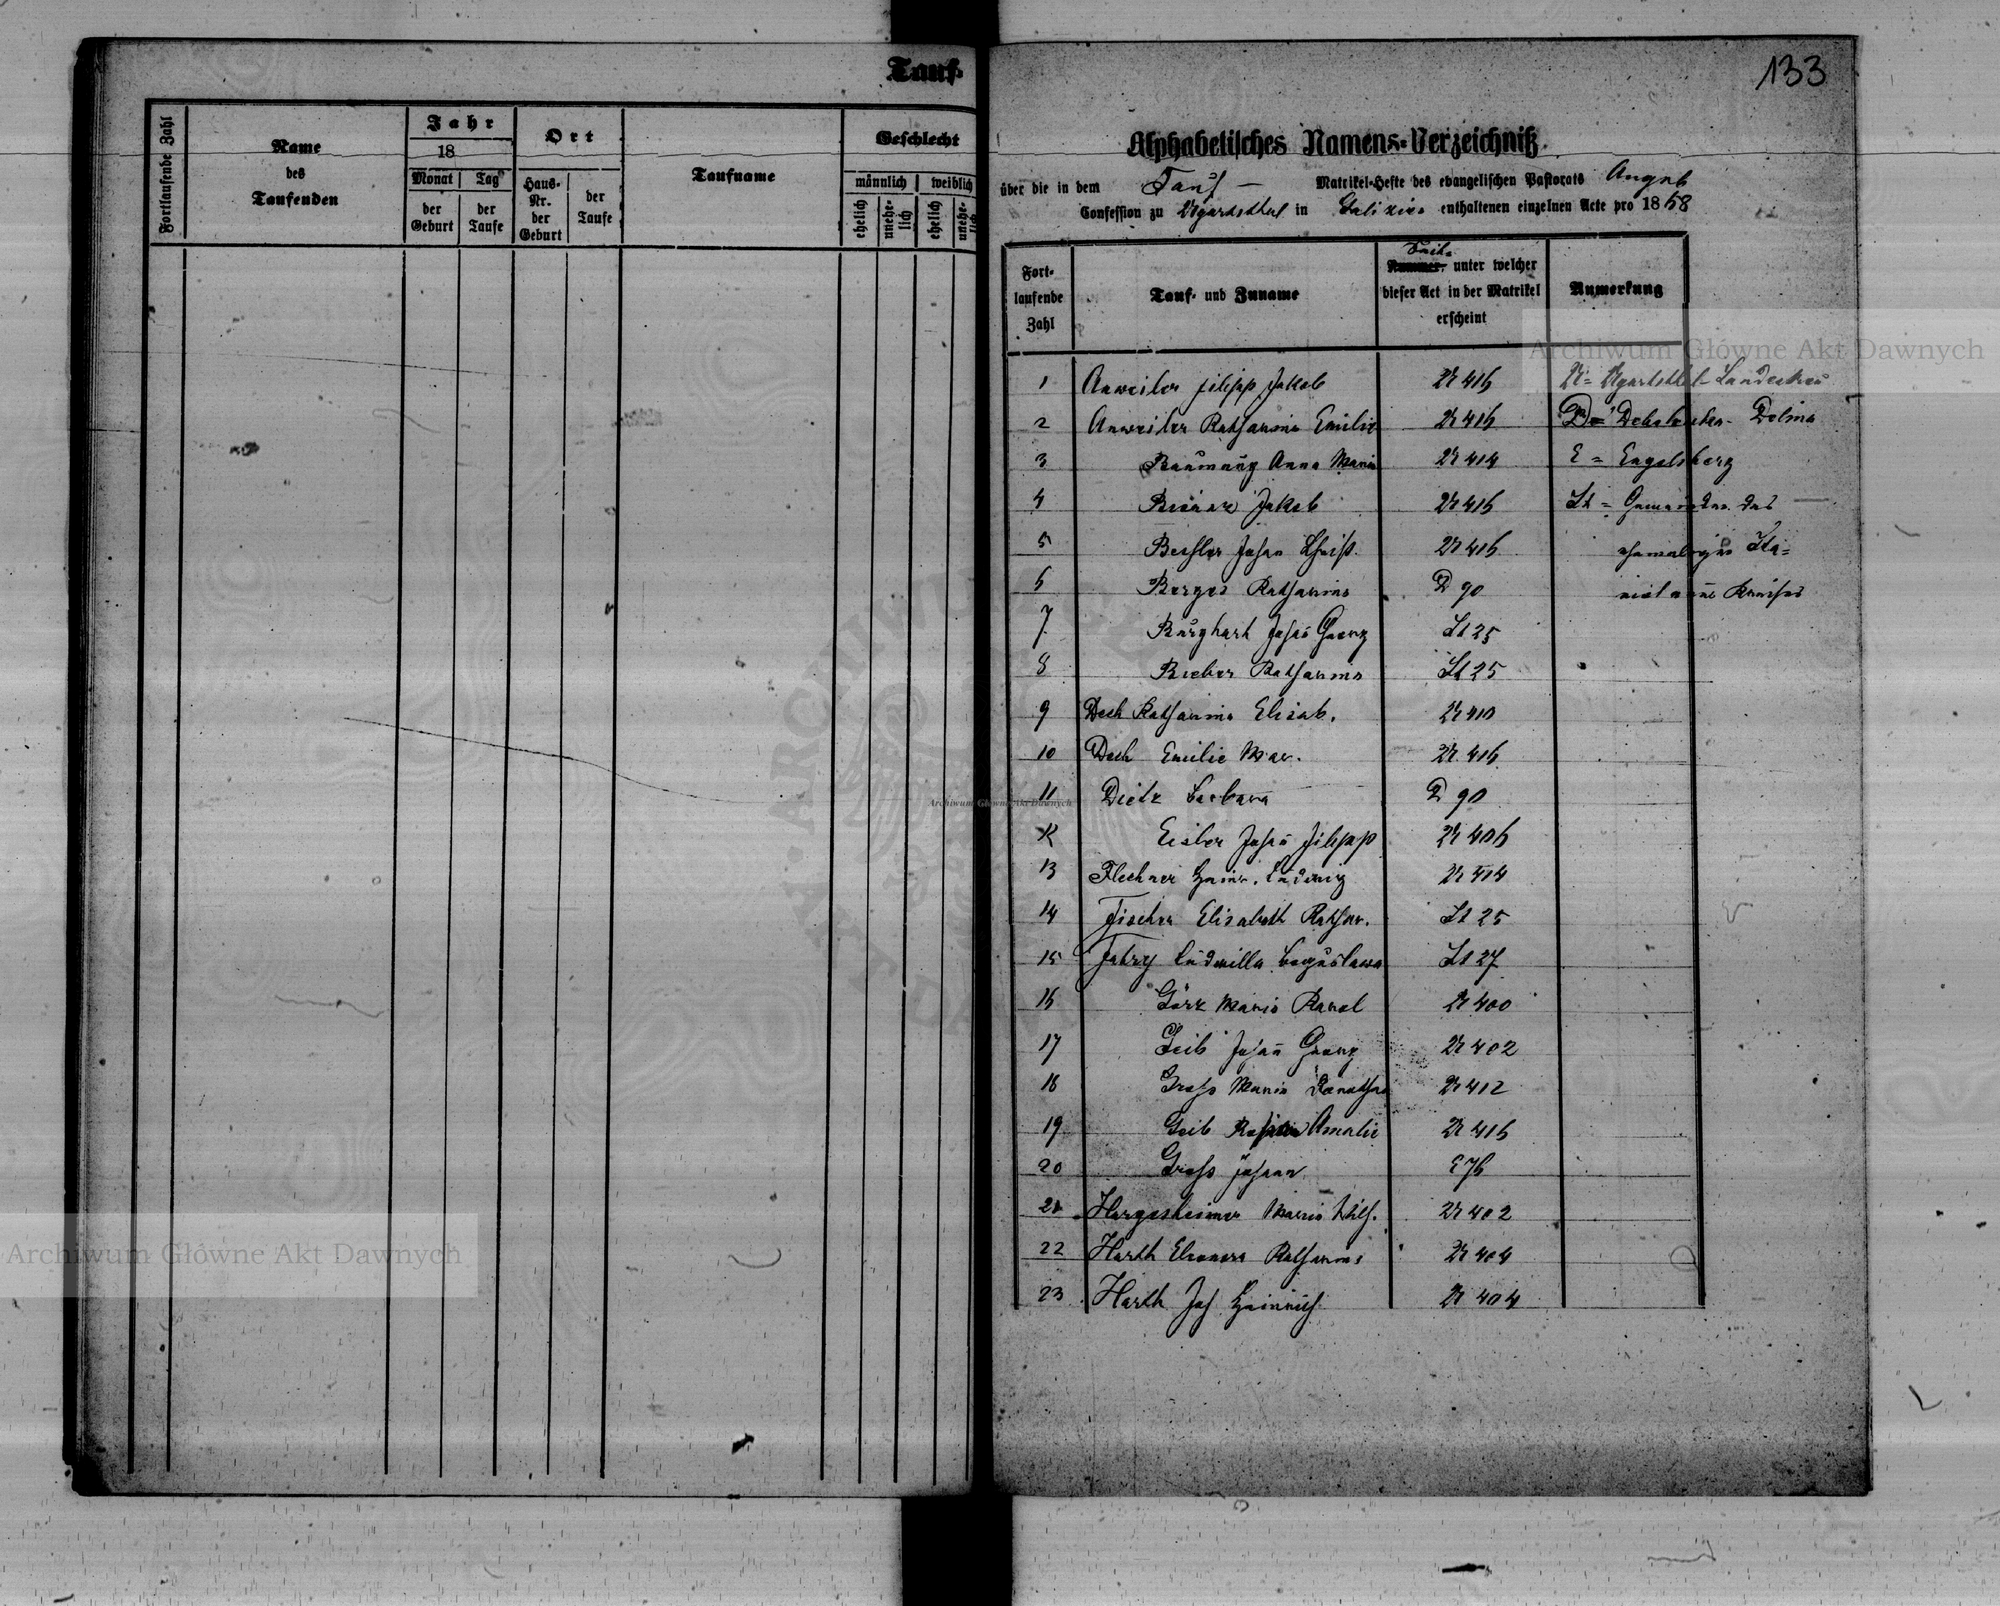 Tauf-
Fortlaufende Zahl
Name
des
Taufenden
Jahr
18
Monat
der
Geburt
Tag
der
Taufe
Ort
Haus-
Nr.
der
Geburt
der
Taufe
Taufname
Geschlecht
männlich
weiblich
ehelich
unehe-
lich
ehelich
unehe-
lich
133
Alphabetisches Namens-Verzeichniß
über die in dem Tauf — Matrikel-Hefte des evangelischen Pastorats Augsb
Confession zu Ugartsthal in Galizien enthaltenen einzelnen Acte pro 1868
Fort-
laufende
Zahl
Tauf- und Zuname
Seite
Nummer, unter welcher
dieser Act in der Matrikel
erscheint
Anmerkung
1 Anweiler Filipp Jakob U 416 U = Ugartsthal Landestreu
2 Anweiler Katharina Emilie U 416 D = Debolówka - Dolina
3 Baumung Anna Maria U 414 E = Engelsberg
4 Jakob U 416 St = Gemeinden des
5 Johan Christ. U 416 ehemaligen Sta=
6 Berges Katharina D 90 nislauer Kreises
7 Burghart Johan Georg St 25
8 Bieber Katharina St 25
9 Dech Katharina Elisab. U 410
10 Dech Emilie Mar. U 416
11 Dietz Barbara D 90
12 Eisler Johan Filipp U 406
13 Flechner Heinr. Ludwig U 414
14 Fischer Elisabeth Kathar. St 25
15 Fabry Ludmilla Boguslawa St 27
16 Görz Maria Karol U 400
17 Geib Johan Georg U 402
18 Groß Maria Dorothea U 412
19 Geib Amalie U 416
20 Groß Johann E 76
21 Hargesheimer Maria Wilh. U 402
22 Harth Eleonora Katharina U 404
23 Harth Joh Heinrich U 404
Archiwum Główne Akt Dawnych
Archiwum Główne Akt Dawnych
Archiwum Główne Akt Dawnych